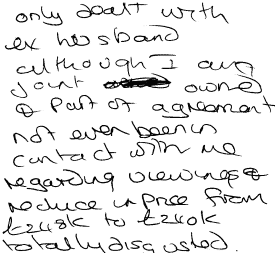 only dealt with
ex husband
although I am
joint owned
& Part of agreement
not even been in
contact with me
regarding viewings &
reduce in price from
£248K to £240K
totally disgusted.